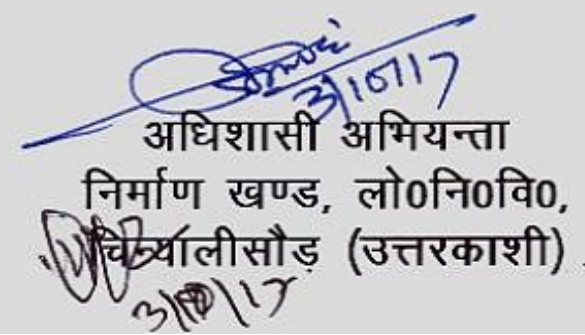 3/10/17
अधिशासी अभियन्ता
निर्माण खण्ड, लो0नि0वि0,
चिन्यालीसौड़ (उत्तरकाशी)